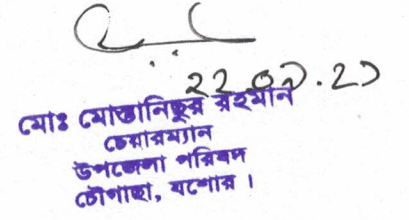 ২২.০৯.২১
মোঃ মোস্তানিছুর রহমান
চেয়ারম্যান
উপজেলা পরিষদ
চৌগাছা, যশোর।